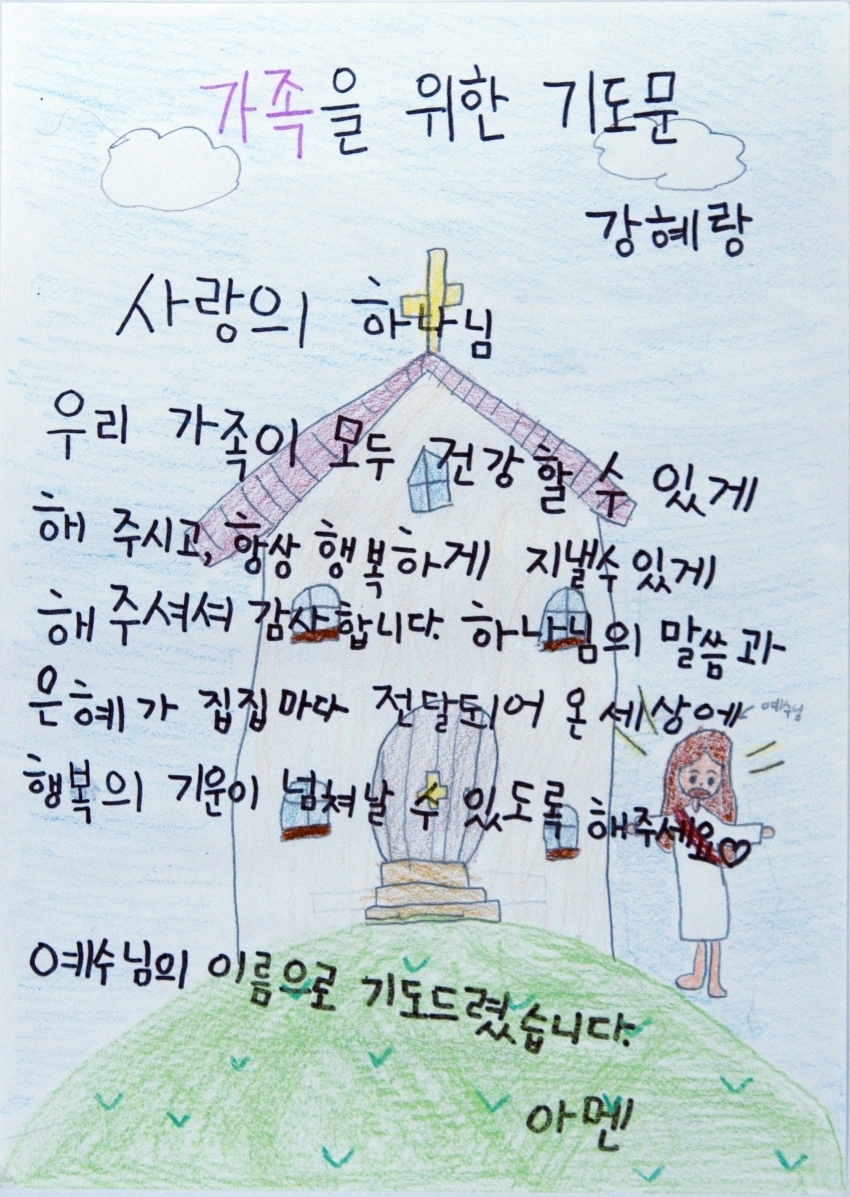 가족을 위한 기도문
강혜랑
사랑의 하나님
우리 가족이 모두 건강 할 수 있게
해 주시고, 항상 행복하게 지낼수있게
해 주셔셔 감사합니다. 하나님의 말씀과
은혜가 집집마다 전달되어 온 세상에
예수님
행복의 기운이 넘쳐날 수 있도록 해주세요♡
예수님의 이름으로 기도드렸습니다.
아멘